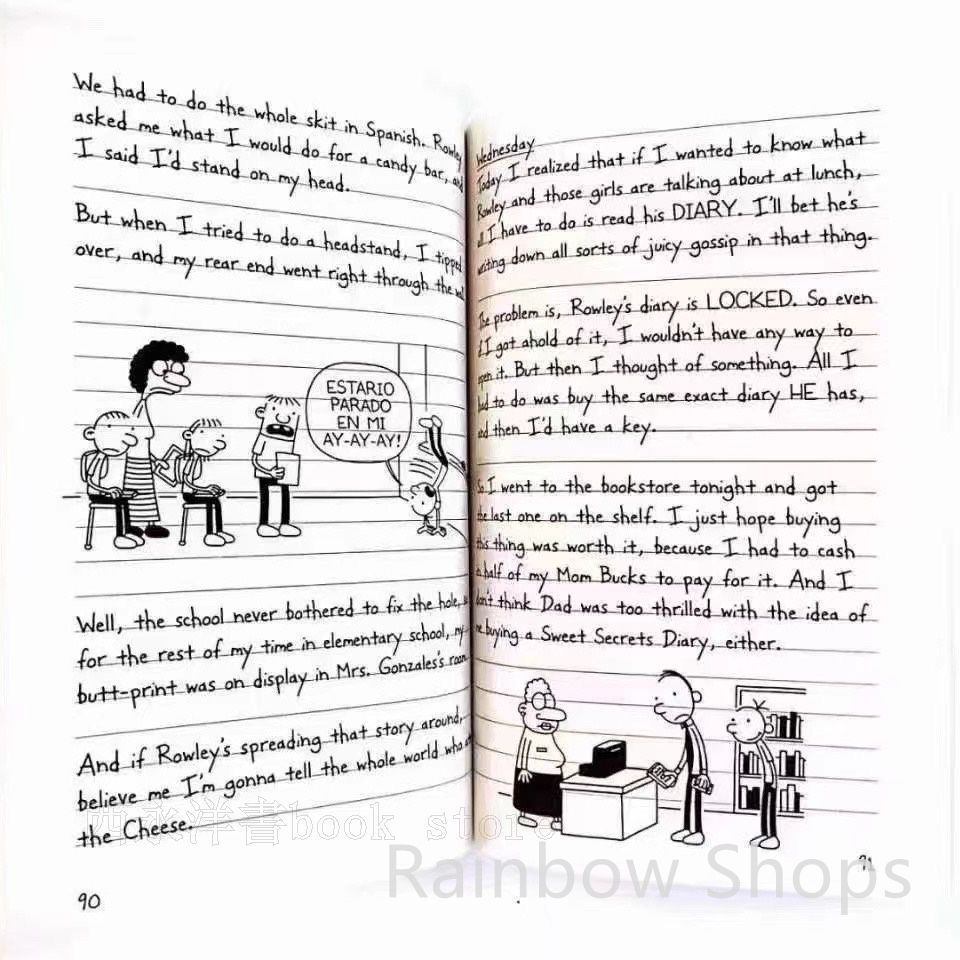 We had to do the whole skit in Spanish. Rowley
asked me what I would do for a candy bar, and
I said I'd stand on my head.
But when I tried to do a headstand, I tipped
over, and my rear end went right through the wall.
ESTARIO
PARADO
EN MI
AY-AY-AY!
Well, the school never bothered to fix the hole, so
for the rest of my time in elementary school, my
butt-print was on display in Mrs. Gonzales's room.
And if Rowley's spreading that story around,
believe me I'm gonna tell the whole world who ate
the Cheese.
90
Wednesday
Today I realized that if I wanted to know what
Rowley and those girls are talking about at lunch,
all I have to do is read his DIARY. I'll bet he's
writing down all sorts of juicy gossip in that thing.
The problem is, Rowley's diary is LOCKED. So even
if I got ahold of it, I wouldn't have any way to
open it. But then I thought of something. All I
had to do was buy the same exact diary HE has,
and then I'd have a key.
So I went to the bookstore tonight and got
the last one on the shelf. I just hope buying
this thing was worth it, because I had to cash
in half of my Mom Bucks to pay for it. And I
don't think Dad was too thrilled with the idea of
me buying a Sweet Secrets Diary, either.
91
book store
Rainbow Shops